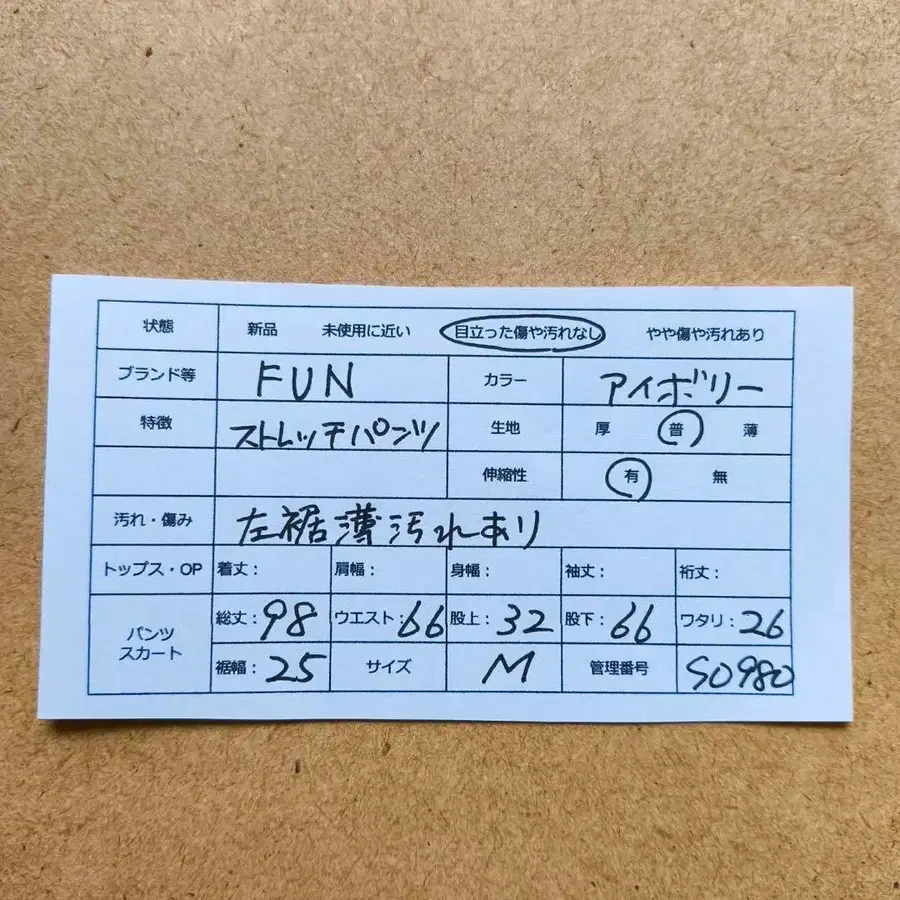 状態 新品 未使用に近い 目立った傷や汚れなし やや傷や汚れあり
ブランド等 FUN カラー アイボリー
特徴 ストレッチパンツ 生地 厚 普 薄
伸縮性 有 無
汚れ・傷み 左裾薄汚れあり
トップス・OP 着丈: 肩幅: 身幅: 袖丈: 裄丈:
パンツ スカート 総丈:98 ウエスト:66 股上:32 股下:66 ワタリ:26
裾幅:25 サイズ M 管理番号 S0980